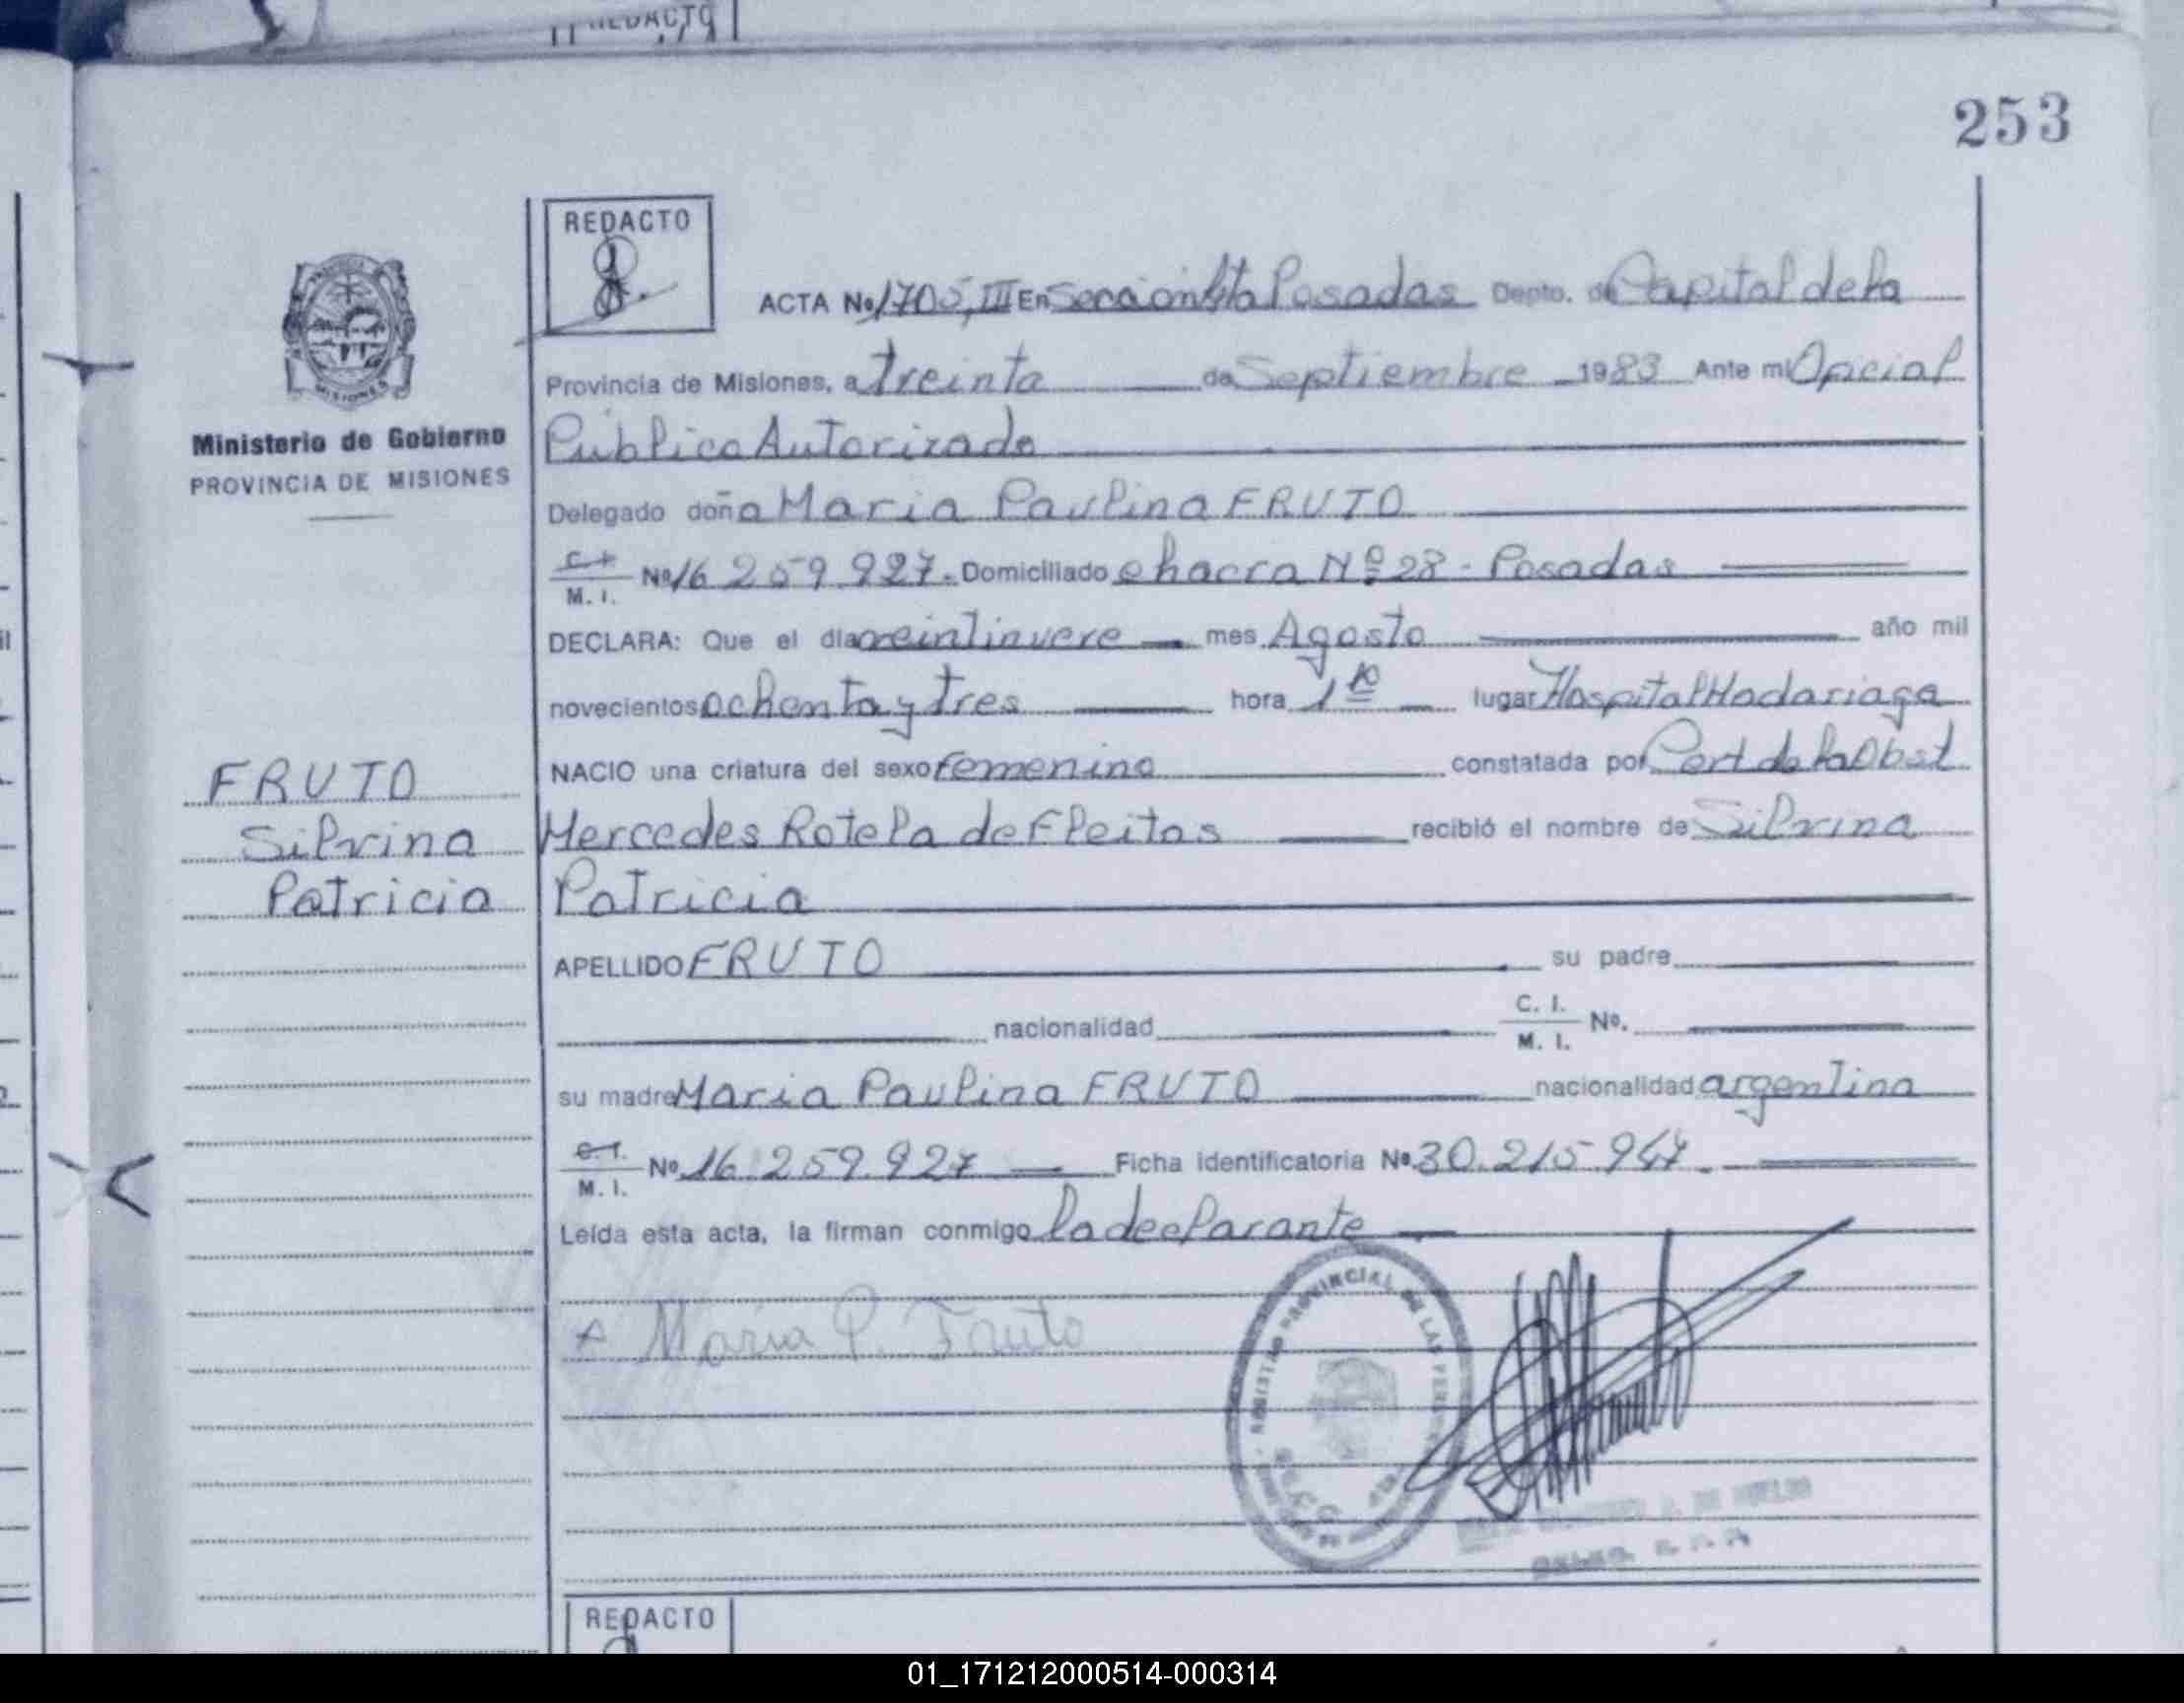 REDACTO
253
REDACTO
ACTA Nº 1705, III En Sección 4ta Posadas Depto. de Capital de la
Provincia de Misiones, a treinta de Septiembre 1983 Ante mi Oficial
Público Autorizado
MISIONES
Ministerio de Gobierno
PROVINCIA DE MISIONES
Delegado doña Maria Paulina FRUTO
C. I.
M. I. Nº 16.259.927. Domiciliado chacra Nº 28 - Posadas
DECLARA: Que el dia veintinueve mes Agosto año mil
novecientos ochenta y tres hora 1 10 lugar Hospital Madariaga
NACIO una criatura del sexo femenino constatada por Cert de la Obst
Mercedes Rotela de Fleitas recibió el nombre de Silvina
Patricia
FRUTO
Silvina
Patricia
APELLIDO FRUTO su padre
nacionalidad C. I.
M. I. Nº.
su madre Maria Paulina FRUTO nacionalidad argentina
C. I.
M. I. Nº 16.259.927 Ficha identificatoria Nº 30.215.947.
Leída esta acta, la firman conmigo la declarante
Maria P. Fruto
REGISTRO PROVINCIAL DE LAS
REDACTO
01_171212000514-000314